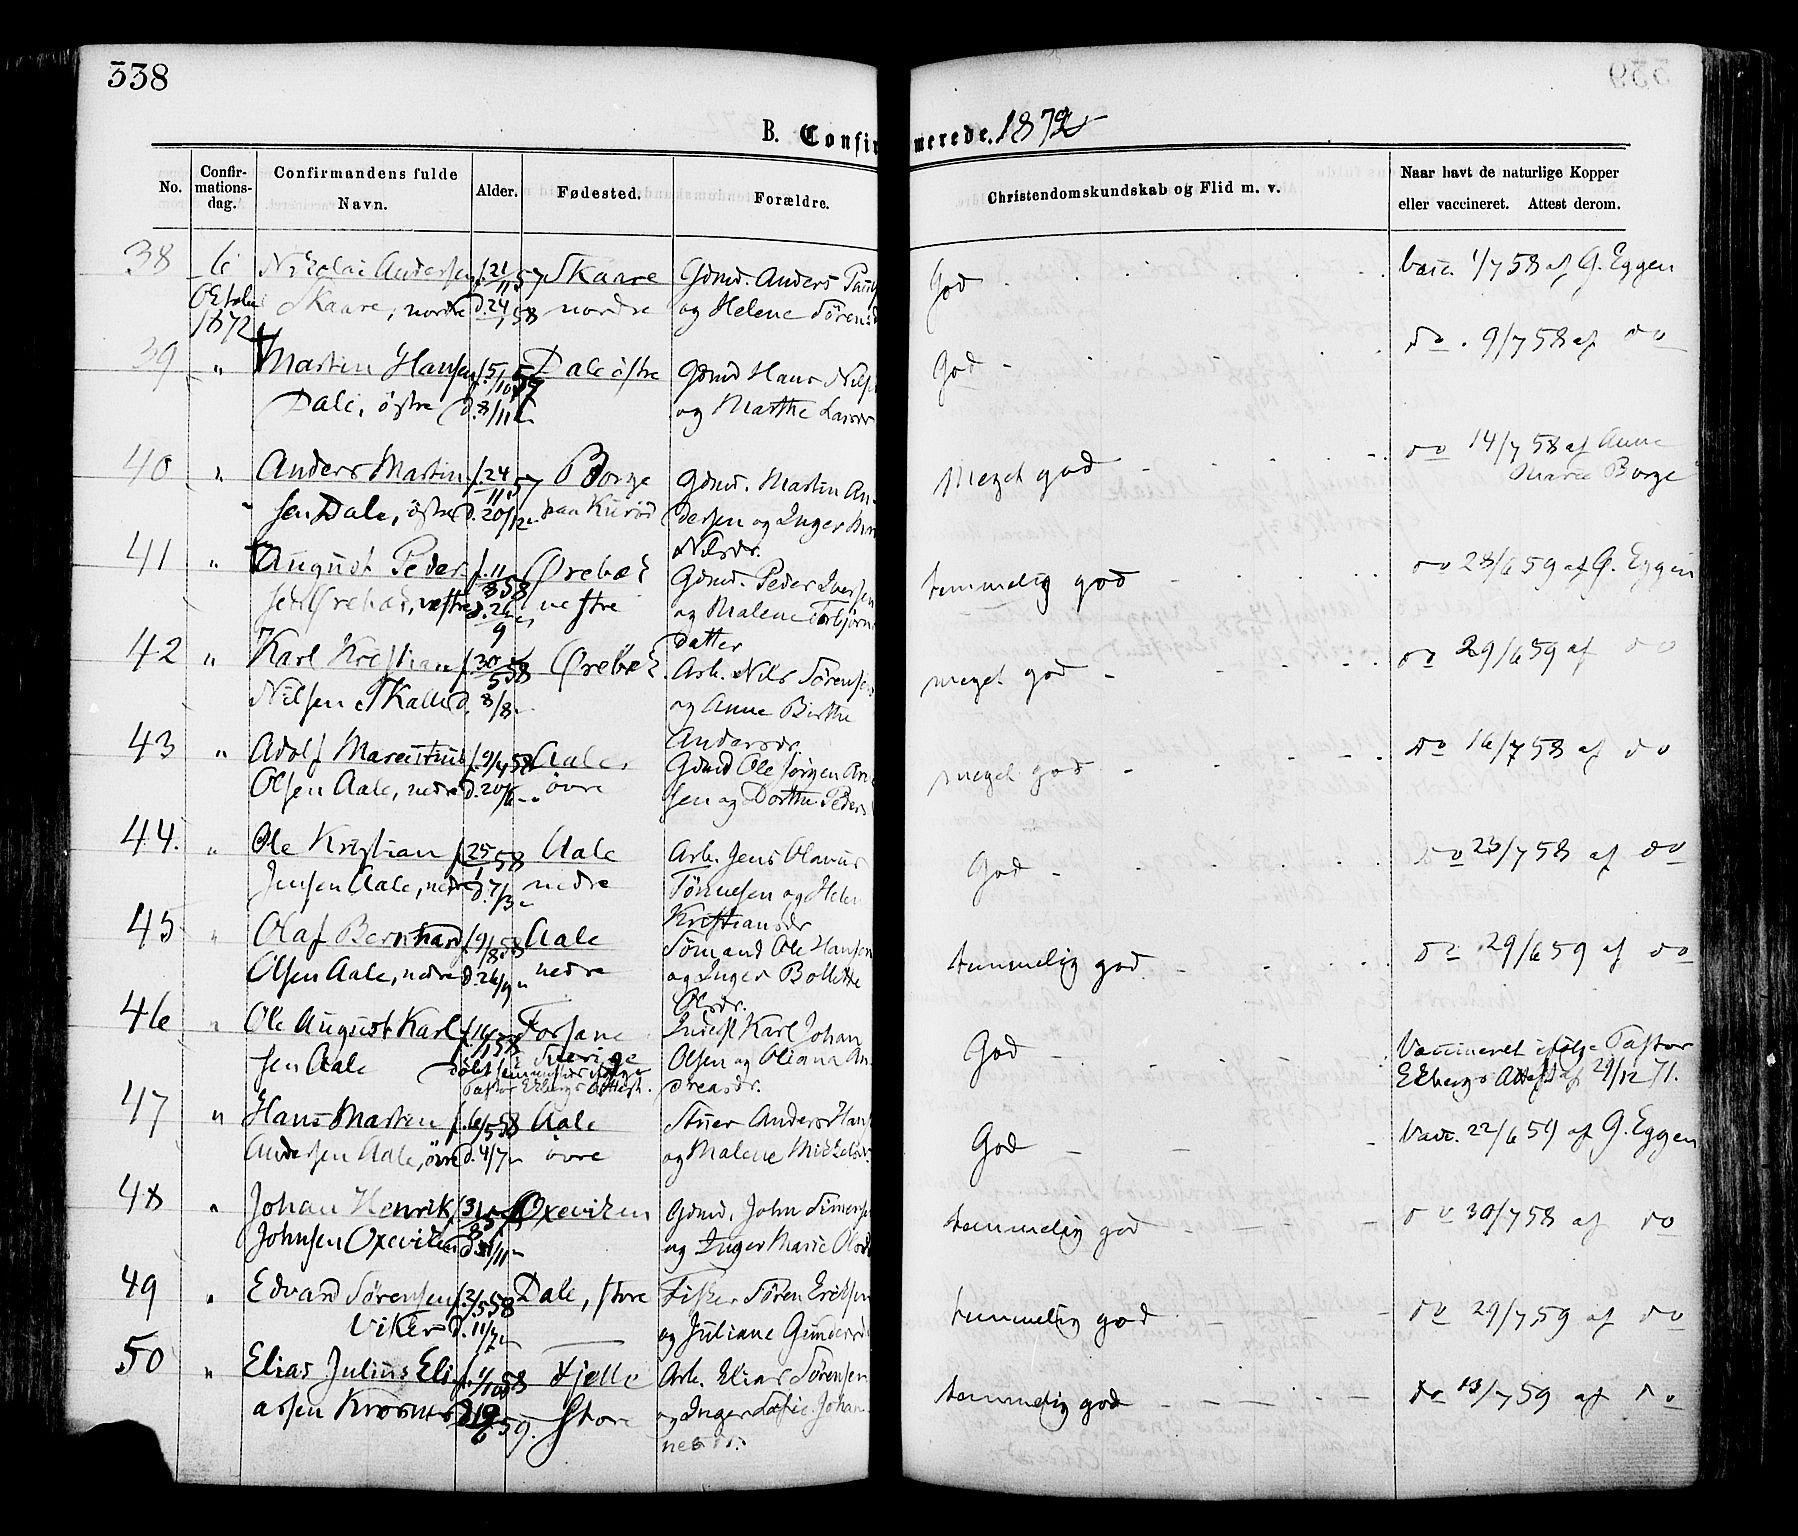 338
B. Confirmerede. 1872
No.
Confir-
mations-
dag.
Confirmandens fulde
Navn.
Alder.
Fødested.
Forældre.
Christendomskundskab og Flid m. v.
Naar havt de naturlige Kopper
eller vaccineret. Attest derom.
38 6 Nikolai Andersen f. 21/11 57 Skaare Gdmd. Anders God Vacc. 1/7 58 af G. Eggen
1872 Skaare, nordre d. 24/1 58 nordre og Helene
39 " Martin Hansen f. 5/10 57 Dale östre Gdmd Hans God do 9/7 58 af do
Dale, östre d. 8/11 " og Marthe
40 " Anders Martin f. 24/11 57 Borge Gdmd. Martin An- Meget god do 14/7 58 af Anne
Marie Borge
sen Dale, östre d. 20/12 " dersen og Inger
Nilsdr.
41 " August Peder f. 11/8 58 Ørebæk Gdmd. Peder temmelig god do 23/6 59 af G. Eggen
sen Ørebæk, vestre d. 26/9 " vestre og Malene Torbjörns
datter
42 " Karl Kristian f. 30/5 58 Ørebæk Arb. Nils Sörensen meget god do 29/6 59 af do
Nilsen d. 8/8 " og Anne Birthe
Andersdr.
43 " Adolf f. 9/4 58 Aale, Gdmd Ole Jörgen meget god do 16/7 58 af do
Olsen Aale, nedre d. 20/6 " övre sen og Dorthe Peders
44. " Ole Kristian f. 25/1 58 Aale Arb. Jens Olavus God do 23/7 58 af do
Jensen Aale, nedre d. 7/3 " nedre Tönnesen og Helen
Kristiansdr
45 " Olaf Bernhard f. 9/8 58 Aale Sömand Ole Hansen temmelig god do 29/6 59 af do
Olsen Aale, nedre d. 26/9 " nedre og Inger Bolette
Olsdr.
46 " Ole August Karl f. Karl Johan God Vaccineret ifölge Pastor
sen Aale Sverige Olsen og Oliana An Ekbergs Attest af 29/12 71.
Pastor Ekbergs Attest. dreasdr.
47 " Hans Martin f. 6/5 58 Aale Anders God Vacc. 22/6 59 af G. Eggen
Andersen Aale, övre d. 4/7 " övre og Malene
48 " Johan Henrik f. Oxeviken Gdmd. John temmelig god do 30/7 58 af do
Johnsen Oxeviken og Inger Marie
49 " Edvard Sörensen f. 2/5 58 Dale, store Fisker Sören Eriksen temmelig god do 29/7 59 af do
Viker d. 11/7 " og Juliane
50 " Elias Julius Eli f. 58 Fjelle Arb. Elias Sörensen temmelig god do 13/7 59 af do
assen 59. store og Inger Johan
nesdr.